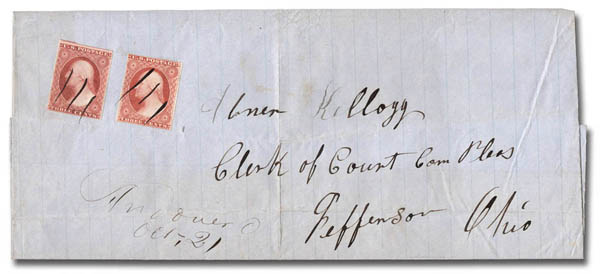 U.S. POSTAGE U.S. POSTAGE
THREE CENTS THREE CENTS
Abner Kellogg
Clerk of Court Com Pleas
Jefferson Ohio
Andover O
Oct, 21